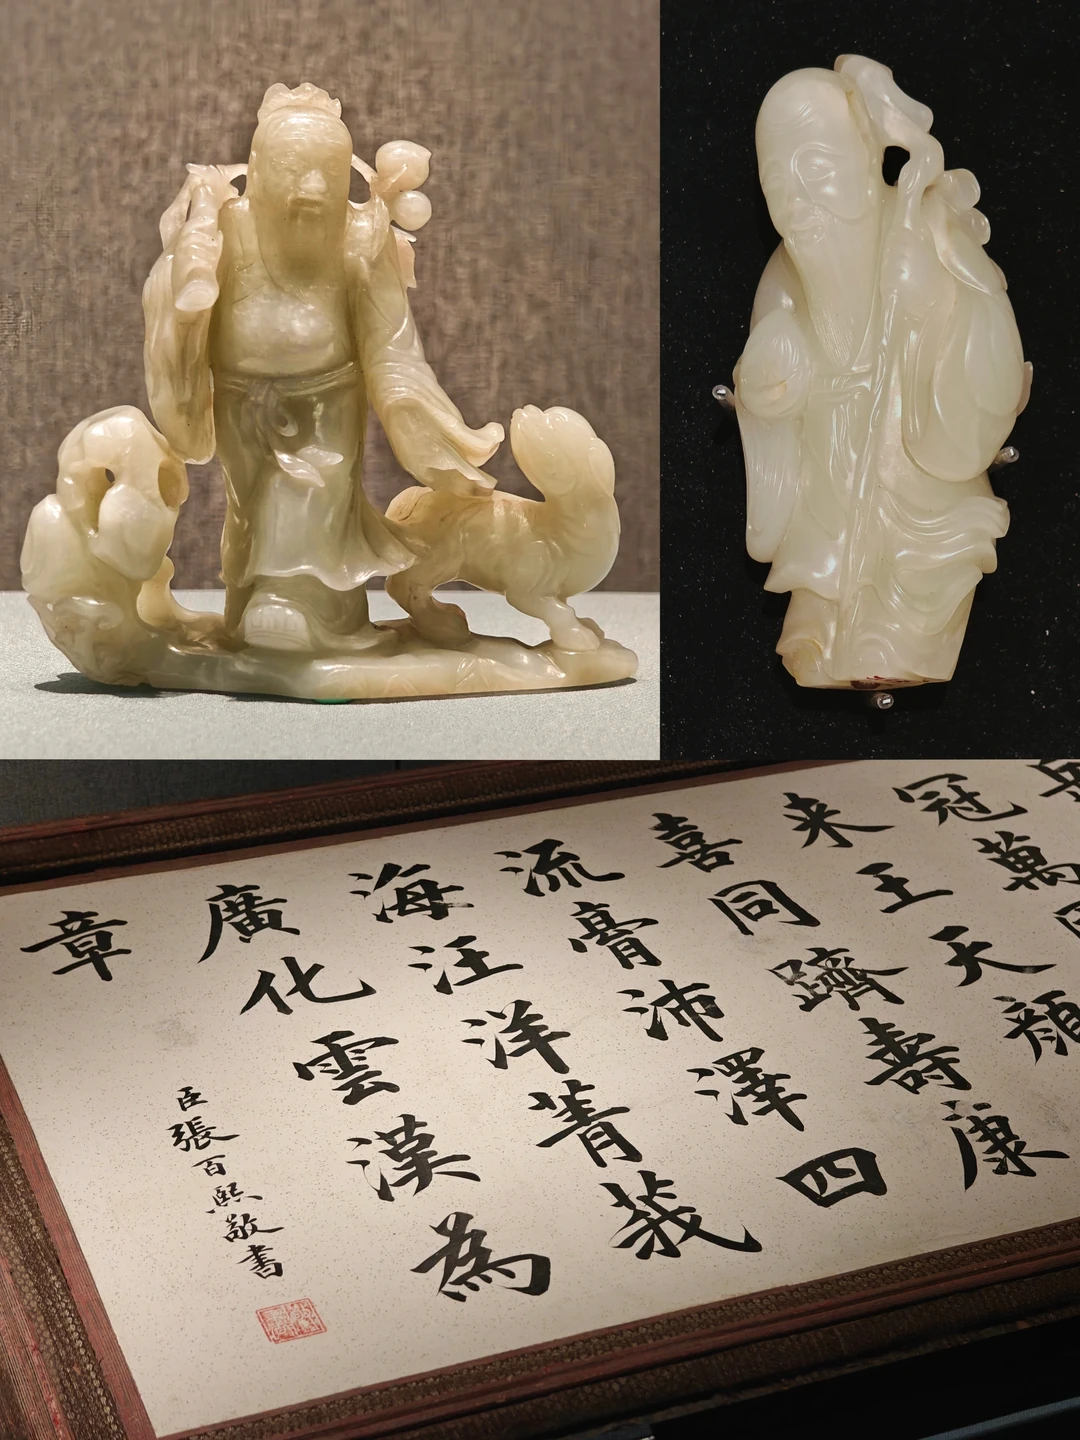 冠萬
来王天顏
喜同躋壽康
流膏沛澤四
海汪洋菁莪
廣化雲漢為
章
臣張百熙敬書